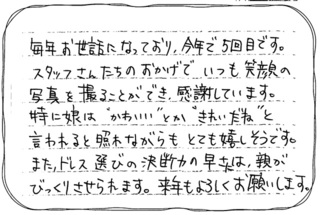 毎年お世話になっており、今年で5回目です。
スタッフさんたちのおかげで、いつも笑顔の
写真を撮ることができ、感謝しています。
特に娘は"かわいい"とか"きれいだね"と
言われると照れながらもとても嬉しそうです。
また、ドレス選びの決断力の早さは、親が
びっくりさせられます。来年もよろしくお願いします。